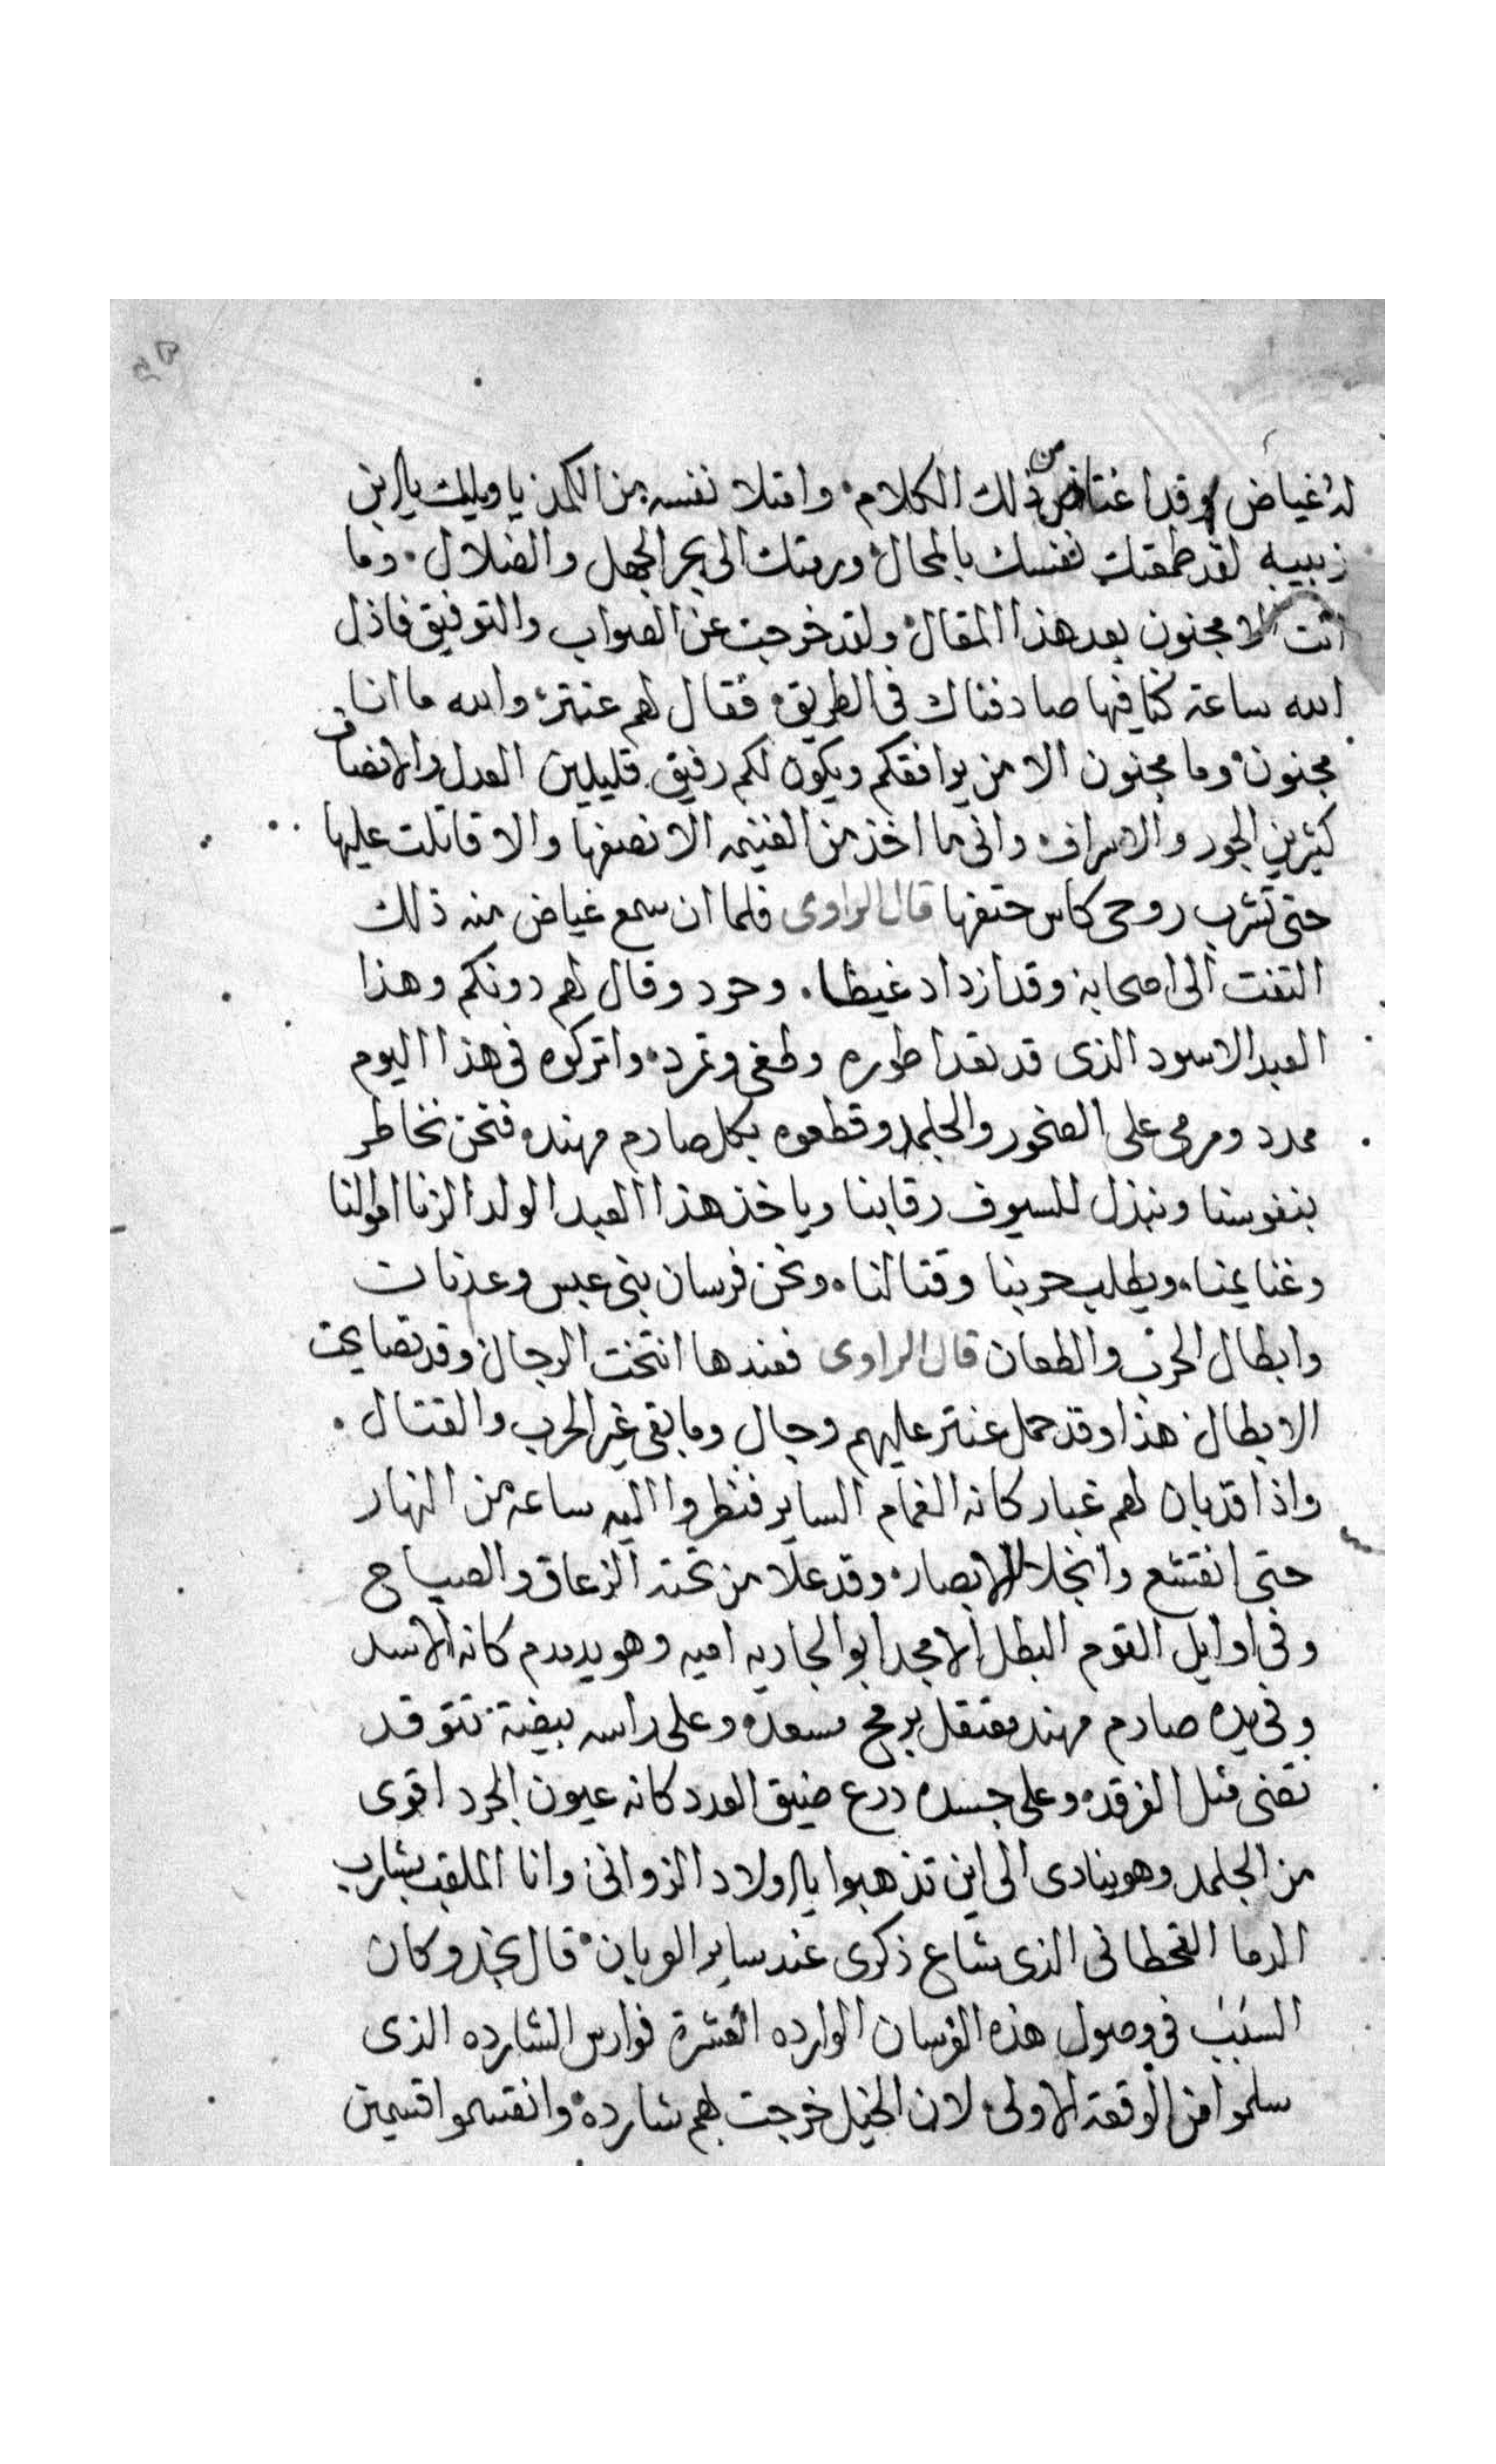 له غياض وقد اغتاض من ذلك الكلام وامتلا نفسه من الكمد يا ويلك يا ابن
زبيبه لقد طمعتك نفسك بالمحال ورمتك الى بحر الجهل والضلال وما
انت الا مجنون بعد هذا المقال ولقد خرجت عن الصواب والتوفيق فاذل
الله ساعة كنا فيها صادفناك في الطريق فقال لهم عنتر والله ما انا
مجنون وما مجنون الا من يوافقكم ويكون لكم رفيق قليلين العدل والانصاف
كثيرين الجور والاسراف واني ما اخذ من الغنيمه الا نصفها والا قاتلت عليها
حتى تشرب روحي كاس حتفها قال الراوى فلما ان سمع غياض منه ذلك
التفت الى اصحابه وقد ازداد غيظا وحرد وقال لهم دونكم وهذا
العبد الاسود الذى قد تعدا طوره وطغى وتمرد واتركوه في هذا اليوم
ممدد ومرمى على الصخور والجلمد وقطعوه بكل صارم مهند فنحن نخاطر
بنفوسنا ونبذل للسيوف رقابنا وياخذ هذا العبد الولد الزنا اموالنا
وغنايمنا ويطلب حربنا وقتالنا ونحن فرسان بني عبس وعدنان
وابطال الحرب والطعان قال الراوى فعندها انتخت الرجال وقد تصايحت
الابطال هذا وقد حمل عنتر عليهم وجال وما بقى غير الحرب والقتال
واذا قد بان لهم غبار كانه الغمام الساير فنظروا اليه ساعه من النهار
حتى انقشع وانجلا للابصار وقد علا من تحته الزعاق والصياح
وفي اوايل القوم البطل الامجد ابو الجاريه اميه وهو يدمدم كانه الاسد
وفي يده صارم مهند معتقل برمح مسعد وعلى راسه بيضة تتوقد
تضى مثل الفرقد وعلى جسده درع ضيق العدد كانه عيون الجرد اقوى
من الجلمد وهو ينادى الى اين تذهبوا يا اولاد الزوانى وانا الملقب بشارب
الدما القحطاني الذى شاع ذكرى عند ساير العربان قال نجد وكان
السبب في وصول هذه الفرسان الوارده العشرة فوارس الشارده الذى
سلموا من الوقعة الاولى لان الخيل خرجت بهم شارده وانقسموا قسمين